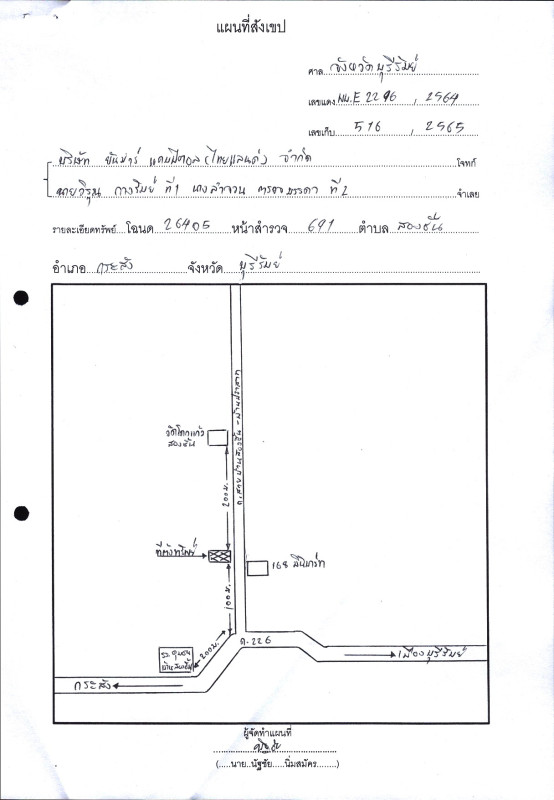 แผนที่สังเขป
ศาล จังหวัดบุรีรัมย์
เลขแดง ผบ.E 2296 , 2564
เลขเก็บ 516 , 2565
บริษัท ยันม่าร์ แคปปิตอล (ไทยแลนด์) จำกัด โจทก์
นายวิรุน กางรัมย์ ที่1 นางลำจวน ครองบรรดา ที่ 2 จำเลย
รายละเอียดทรัพย์ โฉนด 26405 หน้าสำรวจ 691 ตำบล สองชั้น
อำเภอ กระสัง จังหวัด บุรีรัมย์
วัดโคกแก้ว
สองชั้น
200 ม.
ที่ตั้งทรัพย์
168 มินิมาร์ท
100 ม.
ถ.226
200 ม.
เมืองบุรีรัมย์
กระสัง
ผู้จัดทำแผนที่
(....นาย..นัฐชัย.....นิ่มสมัคร........)